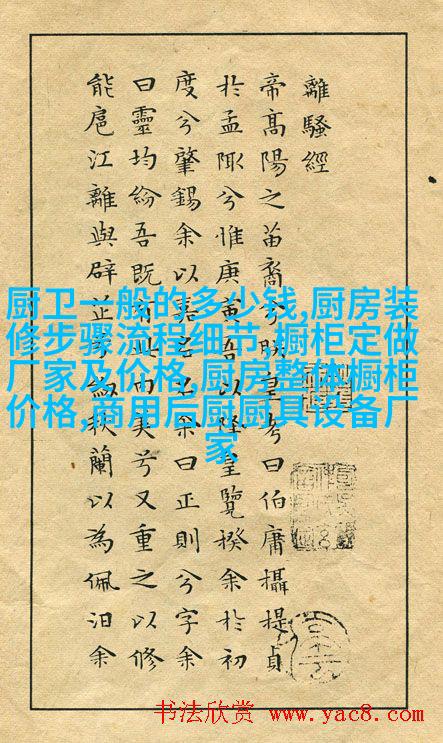 離騷經
帝高陽之苗裔兮朕皇考曰伯庸攝提貞
於孟陬兮惟庚寅吾以降皇覽揆余於初
度兮肇錫余以嘉名名余曰正則兮字余
曰靈均紛吾既有此內美兮又重之以修
能扈江離與辟芷兮紉秋蘭以為佩汨余
厨卫一般的多少钱,厨房装
修步骤流程细节,橱柜定做
厂家及价格,厨房整体橱柜
价格,商用后厨厨具设备厂
家
书法欣赏 www.yac8.com